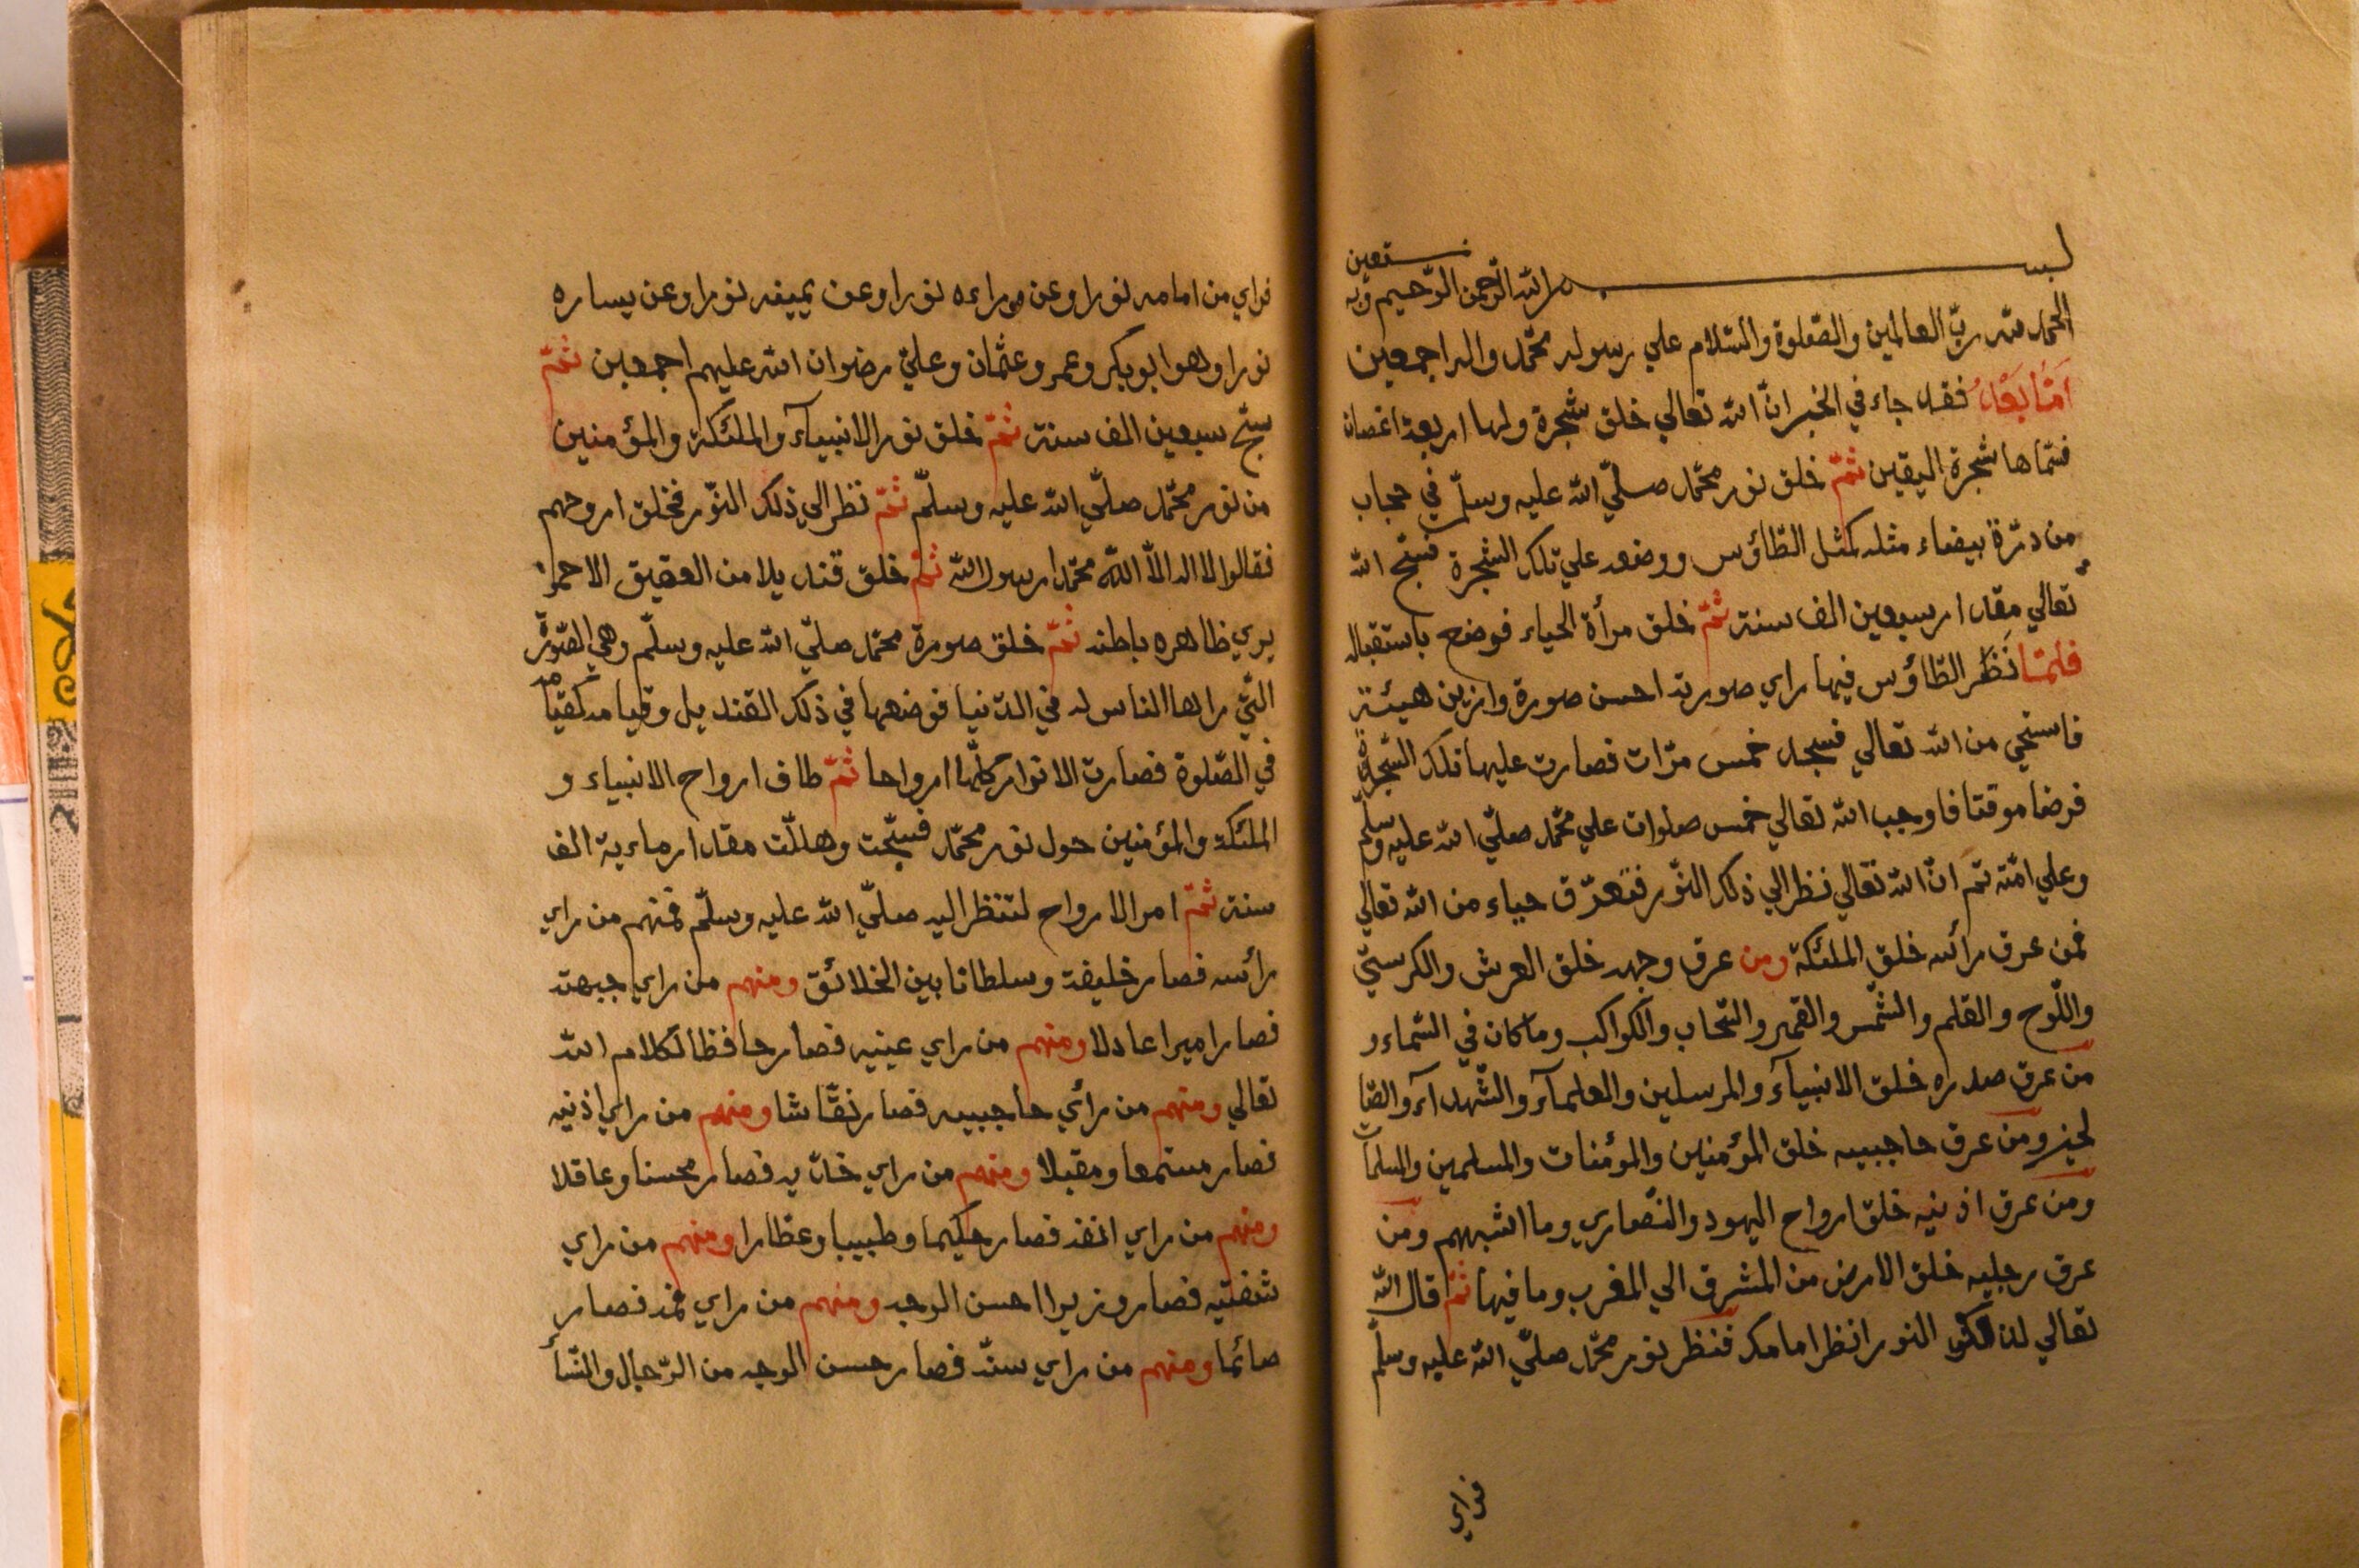 بسم الله الرحمن الرحيم وبه نستعين
الحمد لله ربّ العالمين والصّلوة والسّلام علي رسوله محمّد واله اجمعين
اَمَّا بَعْدُ فقد جاء في الخبر انّ الله تعالي خلق شجرة ولها اربعة اغصان
فسمّاها شجرة اليقين ثمّ خلق نور محمّد صلّي الله عليه وسلّم في حجاب
من درّة بيضاء مثله كمثل الطّاؤس ووضعه علي تلك الشجرة فسبّح الله
تعالي مقدار سبعين الف سنة ثمّ خلق مرأة الحياء فوضع باستقباله
فلمّا نَظَر الطّاؤس فيها راي صورته احسن صورة وازين هيئة
فاستحي من الله تعالي فسجد خمس مرّات فصارت عليها تلك السّجدة
فرضا موقتا فاوجب الله تعالي خمس صلوات علي محمّد صلّي الله عليه وسلّم
وعلي امّته ثم انّ الله تعالي نظر الي ذلك النّور فتعرّق حياء من الله تعالي
فمن عرق رأسه خلق الملئكة ومن عرق وجهه خلق العرش والكرسيّ
واللّوح والقلم والشّمس والقمر والسّحاب والكواكب وما كان في السّماء و
من عرق صدره خلق الانبيآء والمرسلين والعلمآء والشّهدآء والصّا
لحين ومن عرق حاجبيه خلق المؤمنين والمؤمنات والمسلمين والمسلمات
ومن عرق اذنيه خلق ارواح اليهود والنّصاري وما اشبههم ومن
عرق رجليه خلق الارض من المشرق الي المغرب وما فيها ثمّ قال الله
تعالي لذلك النور انظر امامك فنظر نور محمّد صلّي الله عليه وسلّم
فراي
فراي من امامه نورا وعن وراءه نورا وعن يمينه نورا وعن يساره
نورا وهو ابو بكر وعمر وعثمان وعليّ رضوان الله عليهم اجمعين ثمّ
سبّح سبعين الف سنة ثمّ خلق نور الانبيآء والملئكة والمؤمنين
من نور محمّد صلّي الله عليه وسلّم ثمّ نظر الي ذلك النّور فخلق اروحهم
فقالوا لا اله الاّ اللّه محمّد رسول الله ثمّ خلق قنديلا من العقيق الاحمر
يري ظاهره باطنه ثمّ خلق صورة محمّد صلّي الله عليه وسلّم وهي الصّورة
الّتي راها الناس له في الدّنيا فوضعها في ذلك القنديل وقيامه كقيامه
في الصّلوة فصارت الانوار كلّها ارواحا ثمّ طاف ارواح الانبياء و
الملئكة والمؤمنين حول نور محمّد فسبّحت وهلّلت مقدار ماءية الف
سنة ثمّ امر الارواح لتنظر اليه صلّي الله عليه وسلّم فمنهم من راي
رأسه فصار خليفة وسلطانا بين الخلائق ومنهم من راي جبهته
فصار اميرا عادلا ومنهم من راي عينيه فصار حافظا لكلام الله
تعالي ومنهم من رأي حاجبيه فصار نقّاشا ومنهم من راي اذنيه
فصار مستمعا ومقبلا ومنهم من راي خدّيه فصار محسنا وعاقلا
ومنهم من راي انفه فصار حكيما وطبيبا وعطّارا ومنهم من راي
شفتيه فصار وزيرا احسن الوجه ومنهم من راي فمه فصار
صائما ومنهم من راي سنّه فصار حسن الوجه من الرّجال والنّسأ